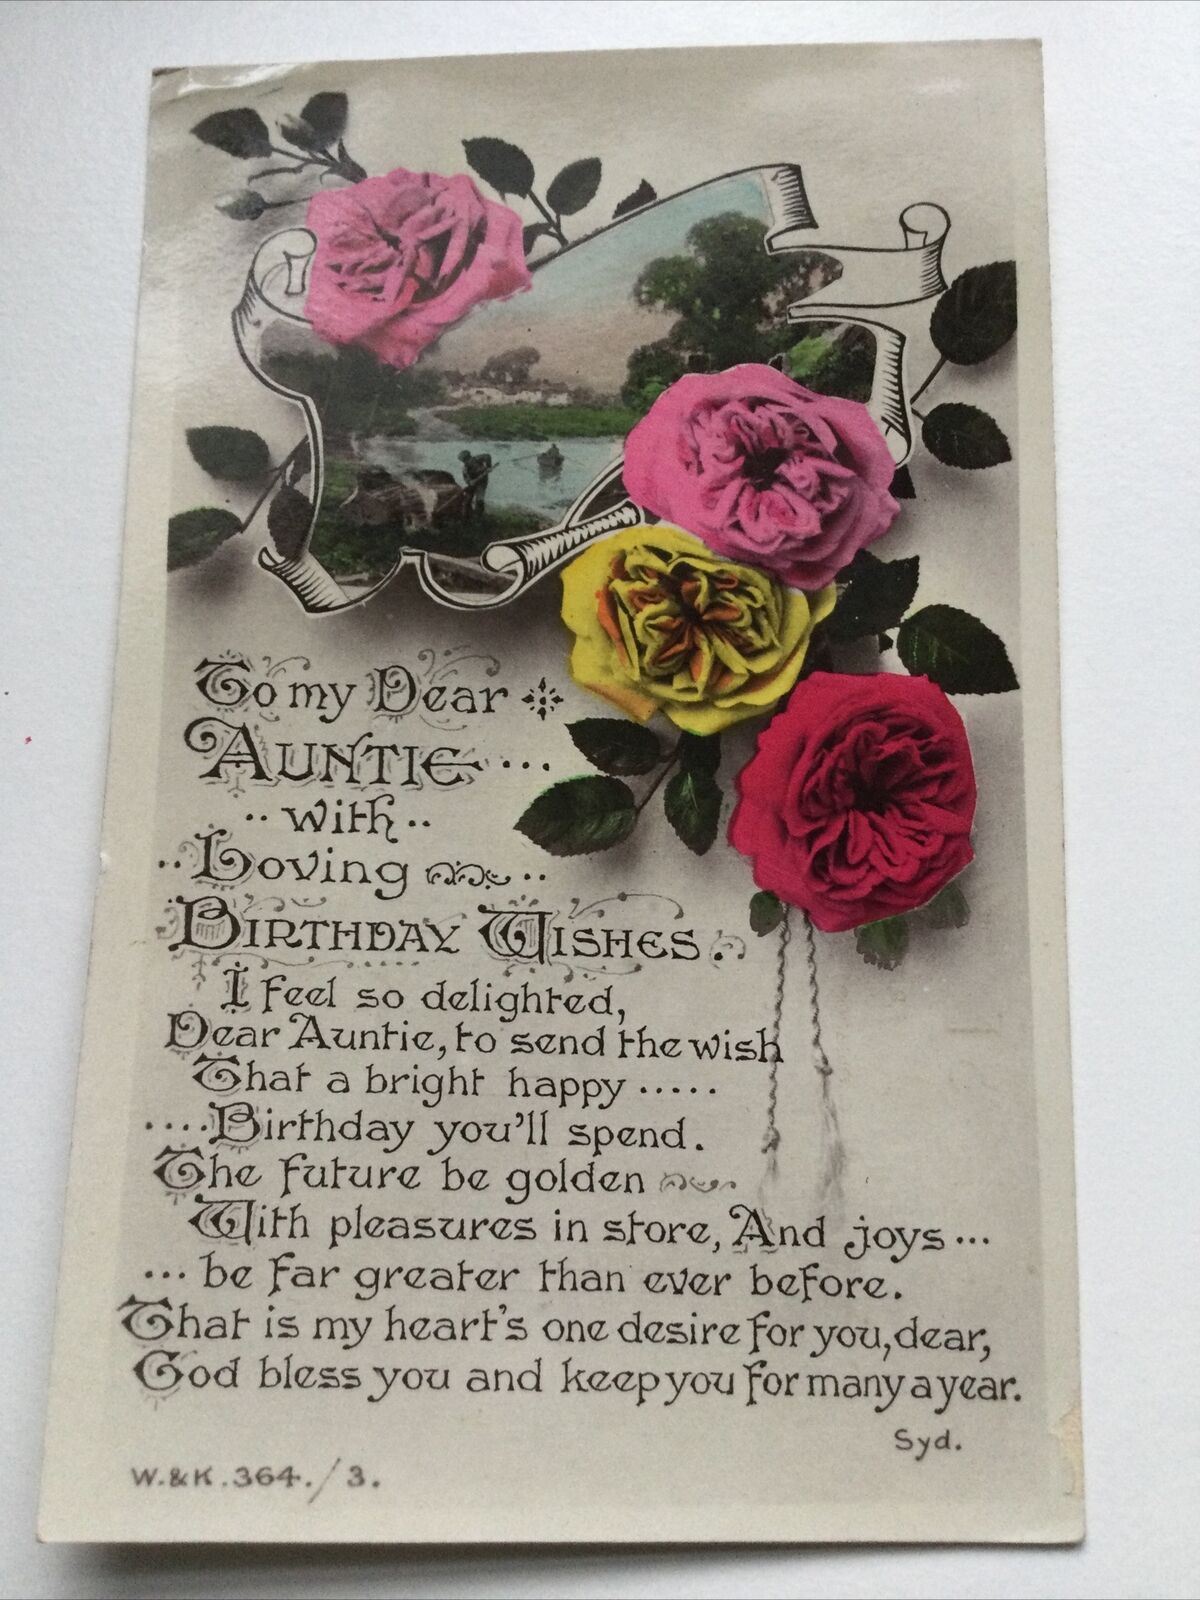 To my Dear
AUNTIE...
..with..
..Loving ..
BIRTHDAY WISHES.
I feel so delighted,
Dear Auntie, to send the wish
That a bright happy .....
....Birthday you'll spend.
The future be golden
With pleasures in store, And joys...
...be far greater than ever before.
That is my heart's one desire for you, dear,
God bless you and keep you for many a year.
Syd.
W.&K.364./3.